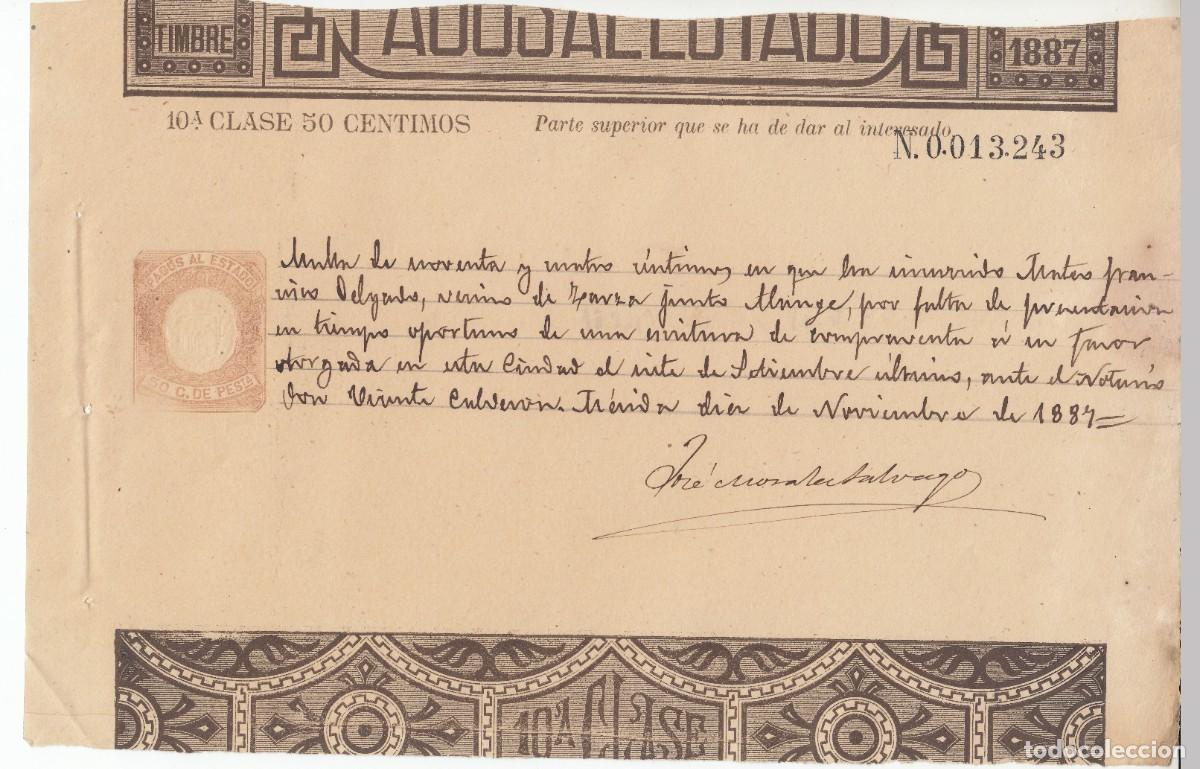 TIMBRE
PAGOS AL ESTADO
1887
10ª CLASE 50 CENTIMOS
Parte superior que se ha de dar al interesado
N.0.013.243
PAGOS AL ESTADO
50 C. DE PESTA
Multa de noventa y cuatro céntimos, en que ha incurrido Mateo Fran-
cisco Delgado, vecino de Zarza junto Alange, por falta de presentacion
en tiempo oportuno de una escritura de compraventa á su favor
otorgada en esta Ciudad el siete de Setiembre último, ante el Notario
Don Vicente Calderon. Mérida diez de Noviembre de 1887=
José Morales
10ª CLASE
todocoleccion